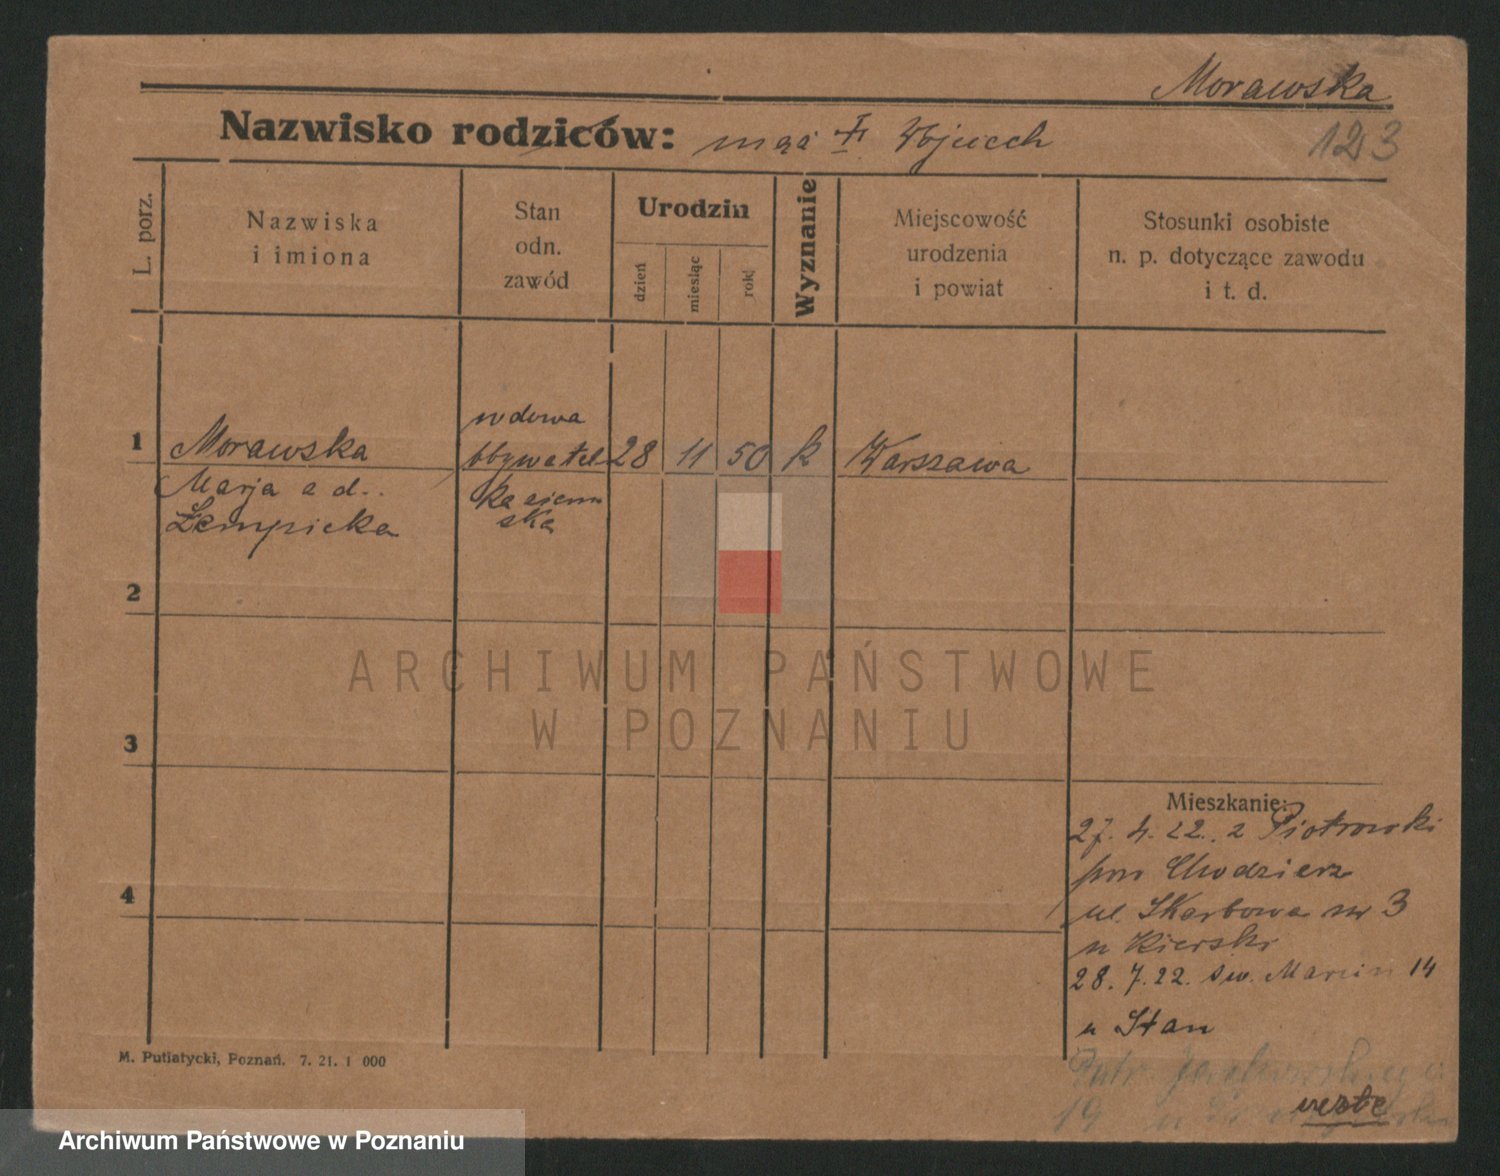 Morawska
Nazwisko rodziców: mąż Wojciech
123
L. porz.
Nazwiska
i imiona
Stan
odn.
zawód
Urodzin
dzień
miesiąc
rok
Wyznanie
Miejscowość
urodzenia
i powiat
Stosunki osobiste
n. p. dotyczące zawodu
i t. d.
1
Morawska
Marja
Łempicka
wdowa
obywatel
ka ziem
ska
28
11
50
k
Warszawa
2
ARCHIWUM PAŃSTWOWE
W POZNANIU
3
4
Mieszkanie:
27. 4. 22. z Piotrowski
pow Chodzierz
ul. Skarbowa nr 3
u Kierski
28. 7. 22. św. Marcin 14
u Stan
19 u
verte
M. Putiatycki, Poznań. 7. 21. 1 000
Archiwum Państwowe w Poznaniu